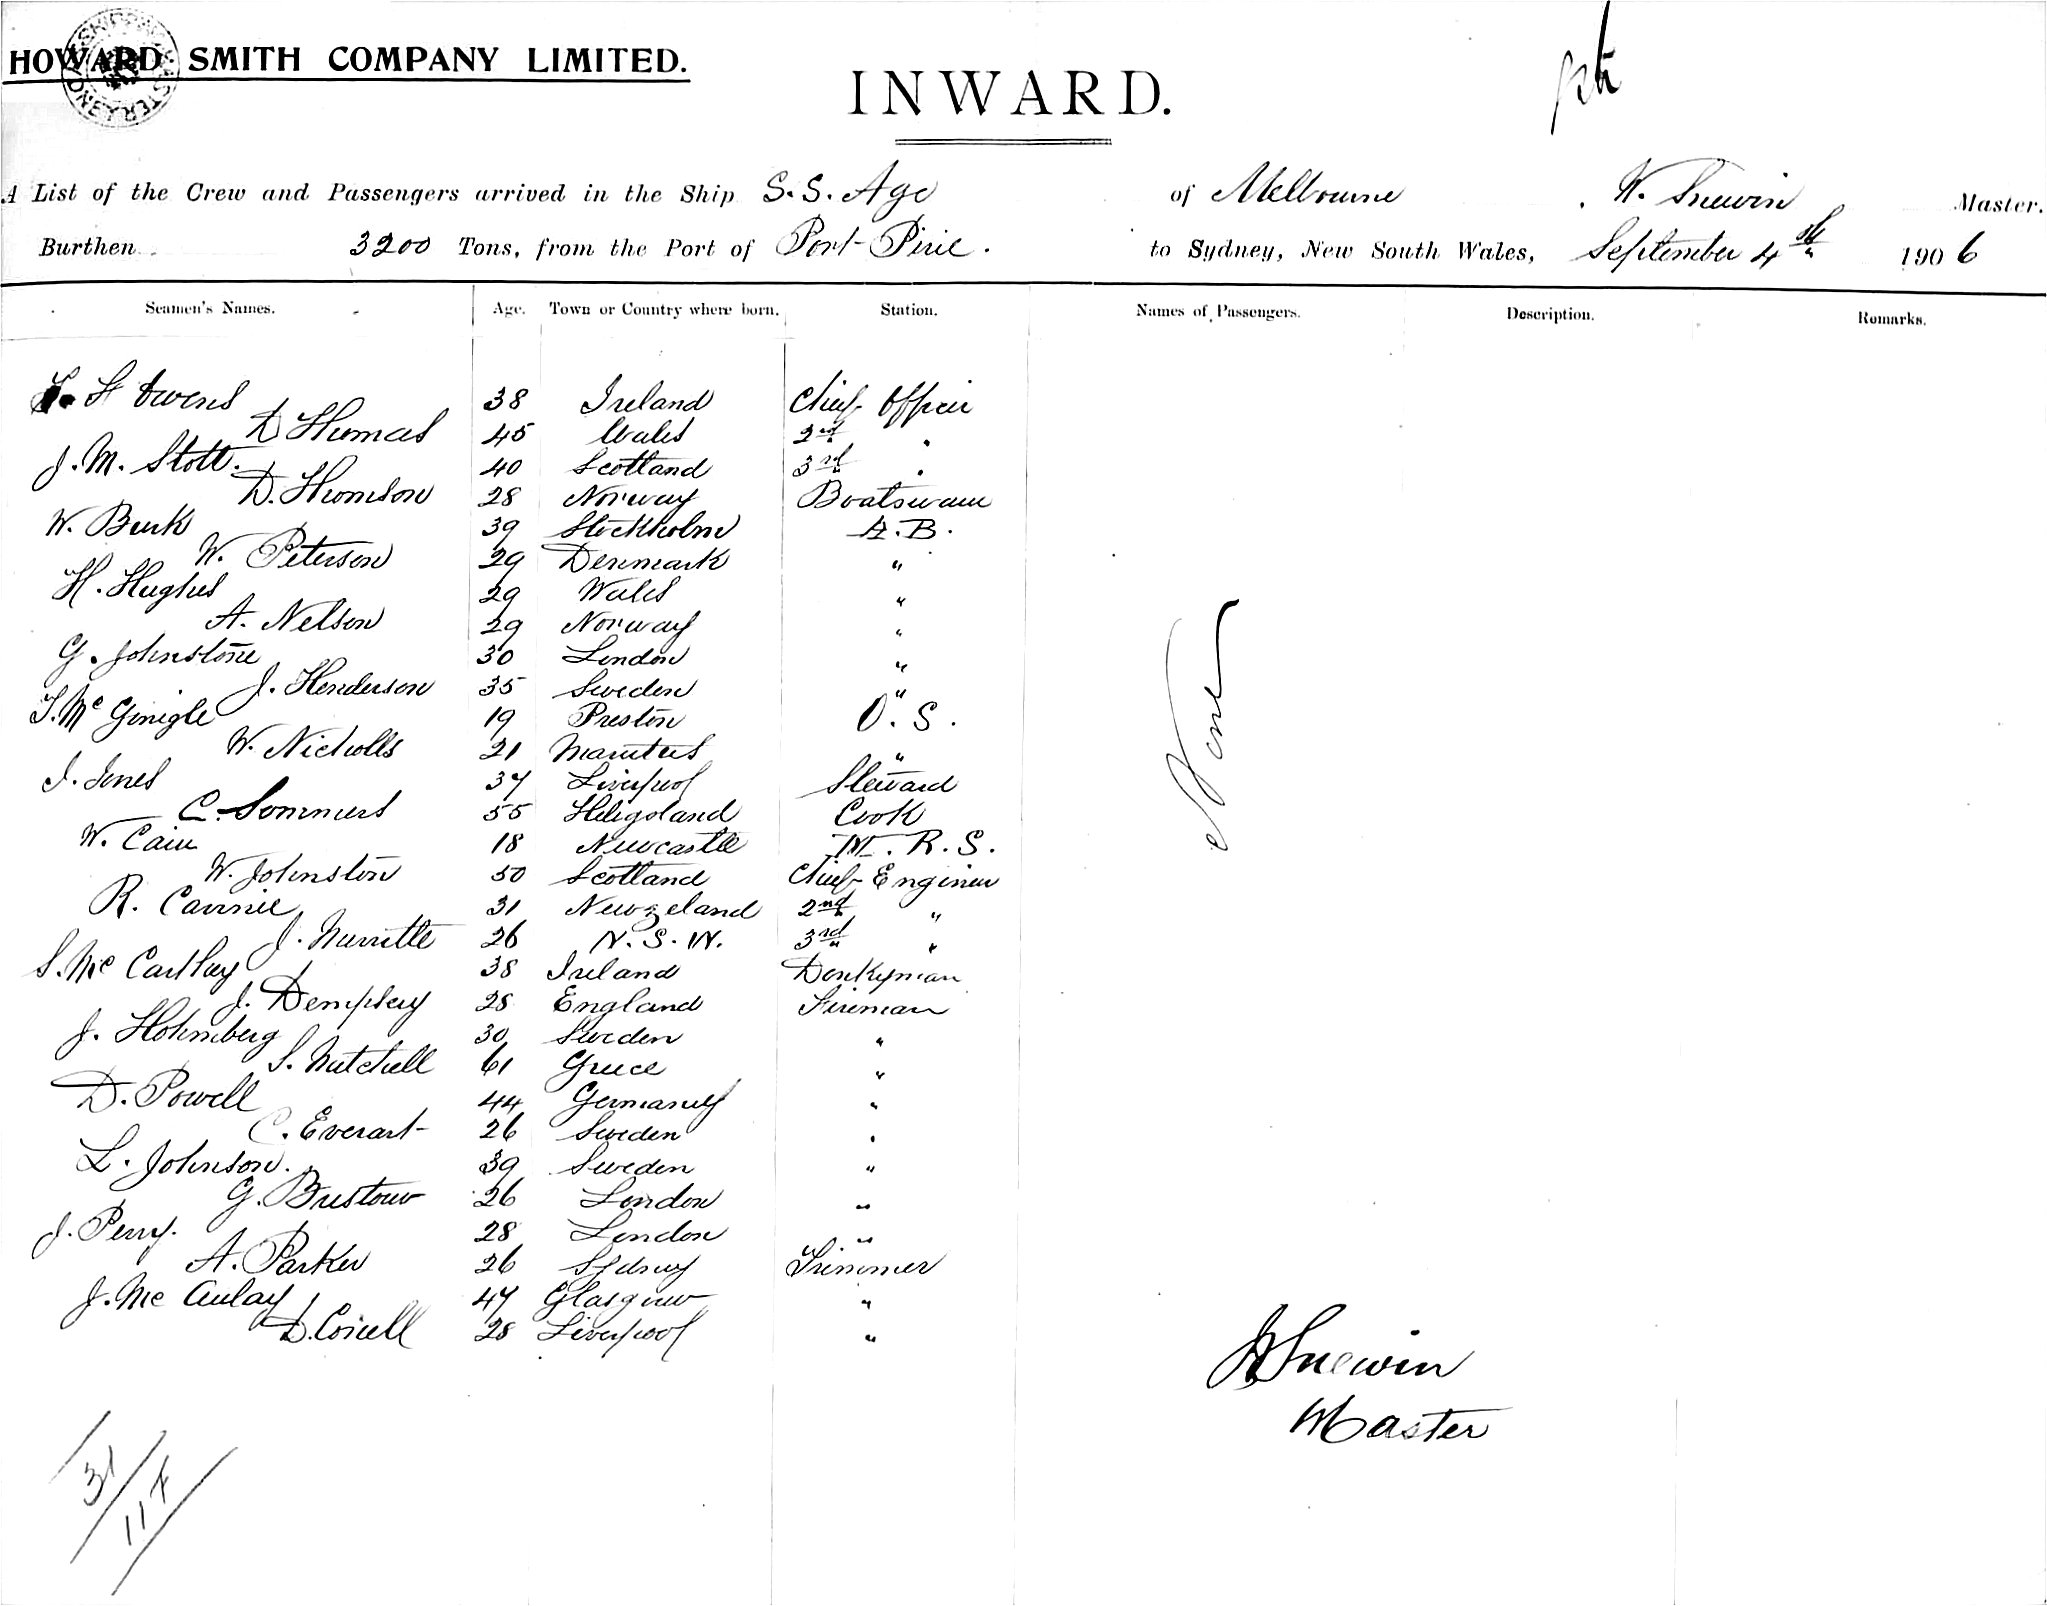 HOWARD SMITH COMPANY LIMITED.
INWARD.
A List of the Crew and Passengers arrived in the Ship S.S. Age of Melbourne, W. Snewin Master.
Burthen 3200 Tons, from the Port of Port Pirie. to Sydney, New South Wales, September 4th 1906
Seamen's Names. Age. Town or Country where born. Station. Names of Passengers. Description. Remarks.
Owens 38 Ireland Chief Officer
D Thomas 45 Wales 2nd "
J. M. Stott. 40 Scotland 3rd "
D. Thomson 28 Norway Boatswain
W. Burk 39 Stockholm A.B.
W. Peterson 29 Denmark "
H. Hughes 29 Wales "
A. Nelson 29 Norway "
G. Johnstone 30 London "
J. Henderson 35 Sweden "
T. Mc Ginigle 19 Preston O.S.
W. Nicholls 21 "
J. Jones 37 Liverpool Steward
C. Sommers 55 Heligoland Cook
W. Cain 18 Newcastle M.R.S.
W. Johnston 50 Scotland Chief Engineer
R. 31 New Zeland 2nd "
J. 26 N.S.W. 3rd "
S. Mc Carthy 38 Ireland Donkyman
J. Dempsey 28 England Fireman
J. Hohmberg 30 Sweden "
S. Mitchell 61 Greece "
D. Powell 44 Germany "
C. Everart 26 Sweden "
L. Johnson. 39 Sweden "
G. Bristow 26 London "
J. Perry. 28 London "
A. Parker 26 Sydney Trimmer
J. Mc Aulay 47 Glasgow "
D. 28 Liverpool "
None
W Snewin
Master
31